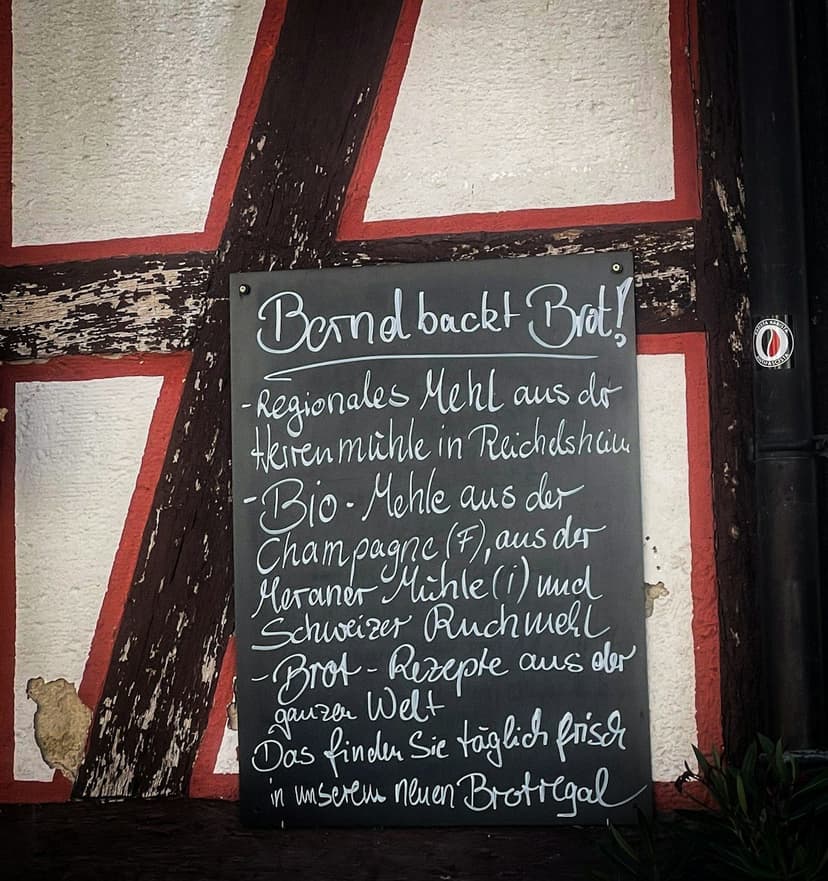 Bernd backt Brot!
- Regionales Mehl aus der
Herrenmühle in Reichelsheim
- Bio - Mehle aus der
Champagne (F), aus der
Meraner Mühle (i) und
Schweizer Ruchmehl
- Brot - Rezepte aus der
ganzen Welt
Das finden Sie täglich frisch
in unserem neuen Brotregal